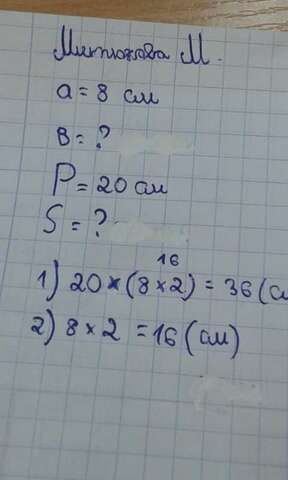 Митюкова М.
a = 8 см
в = ?
P = 20 см
S = ?
16
1) 20 × (8 × 2) = 36 (с
2) 8 × 2 = 16 (см)